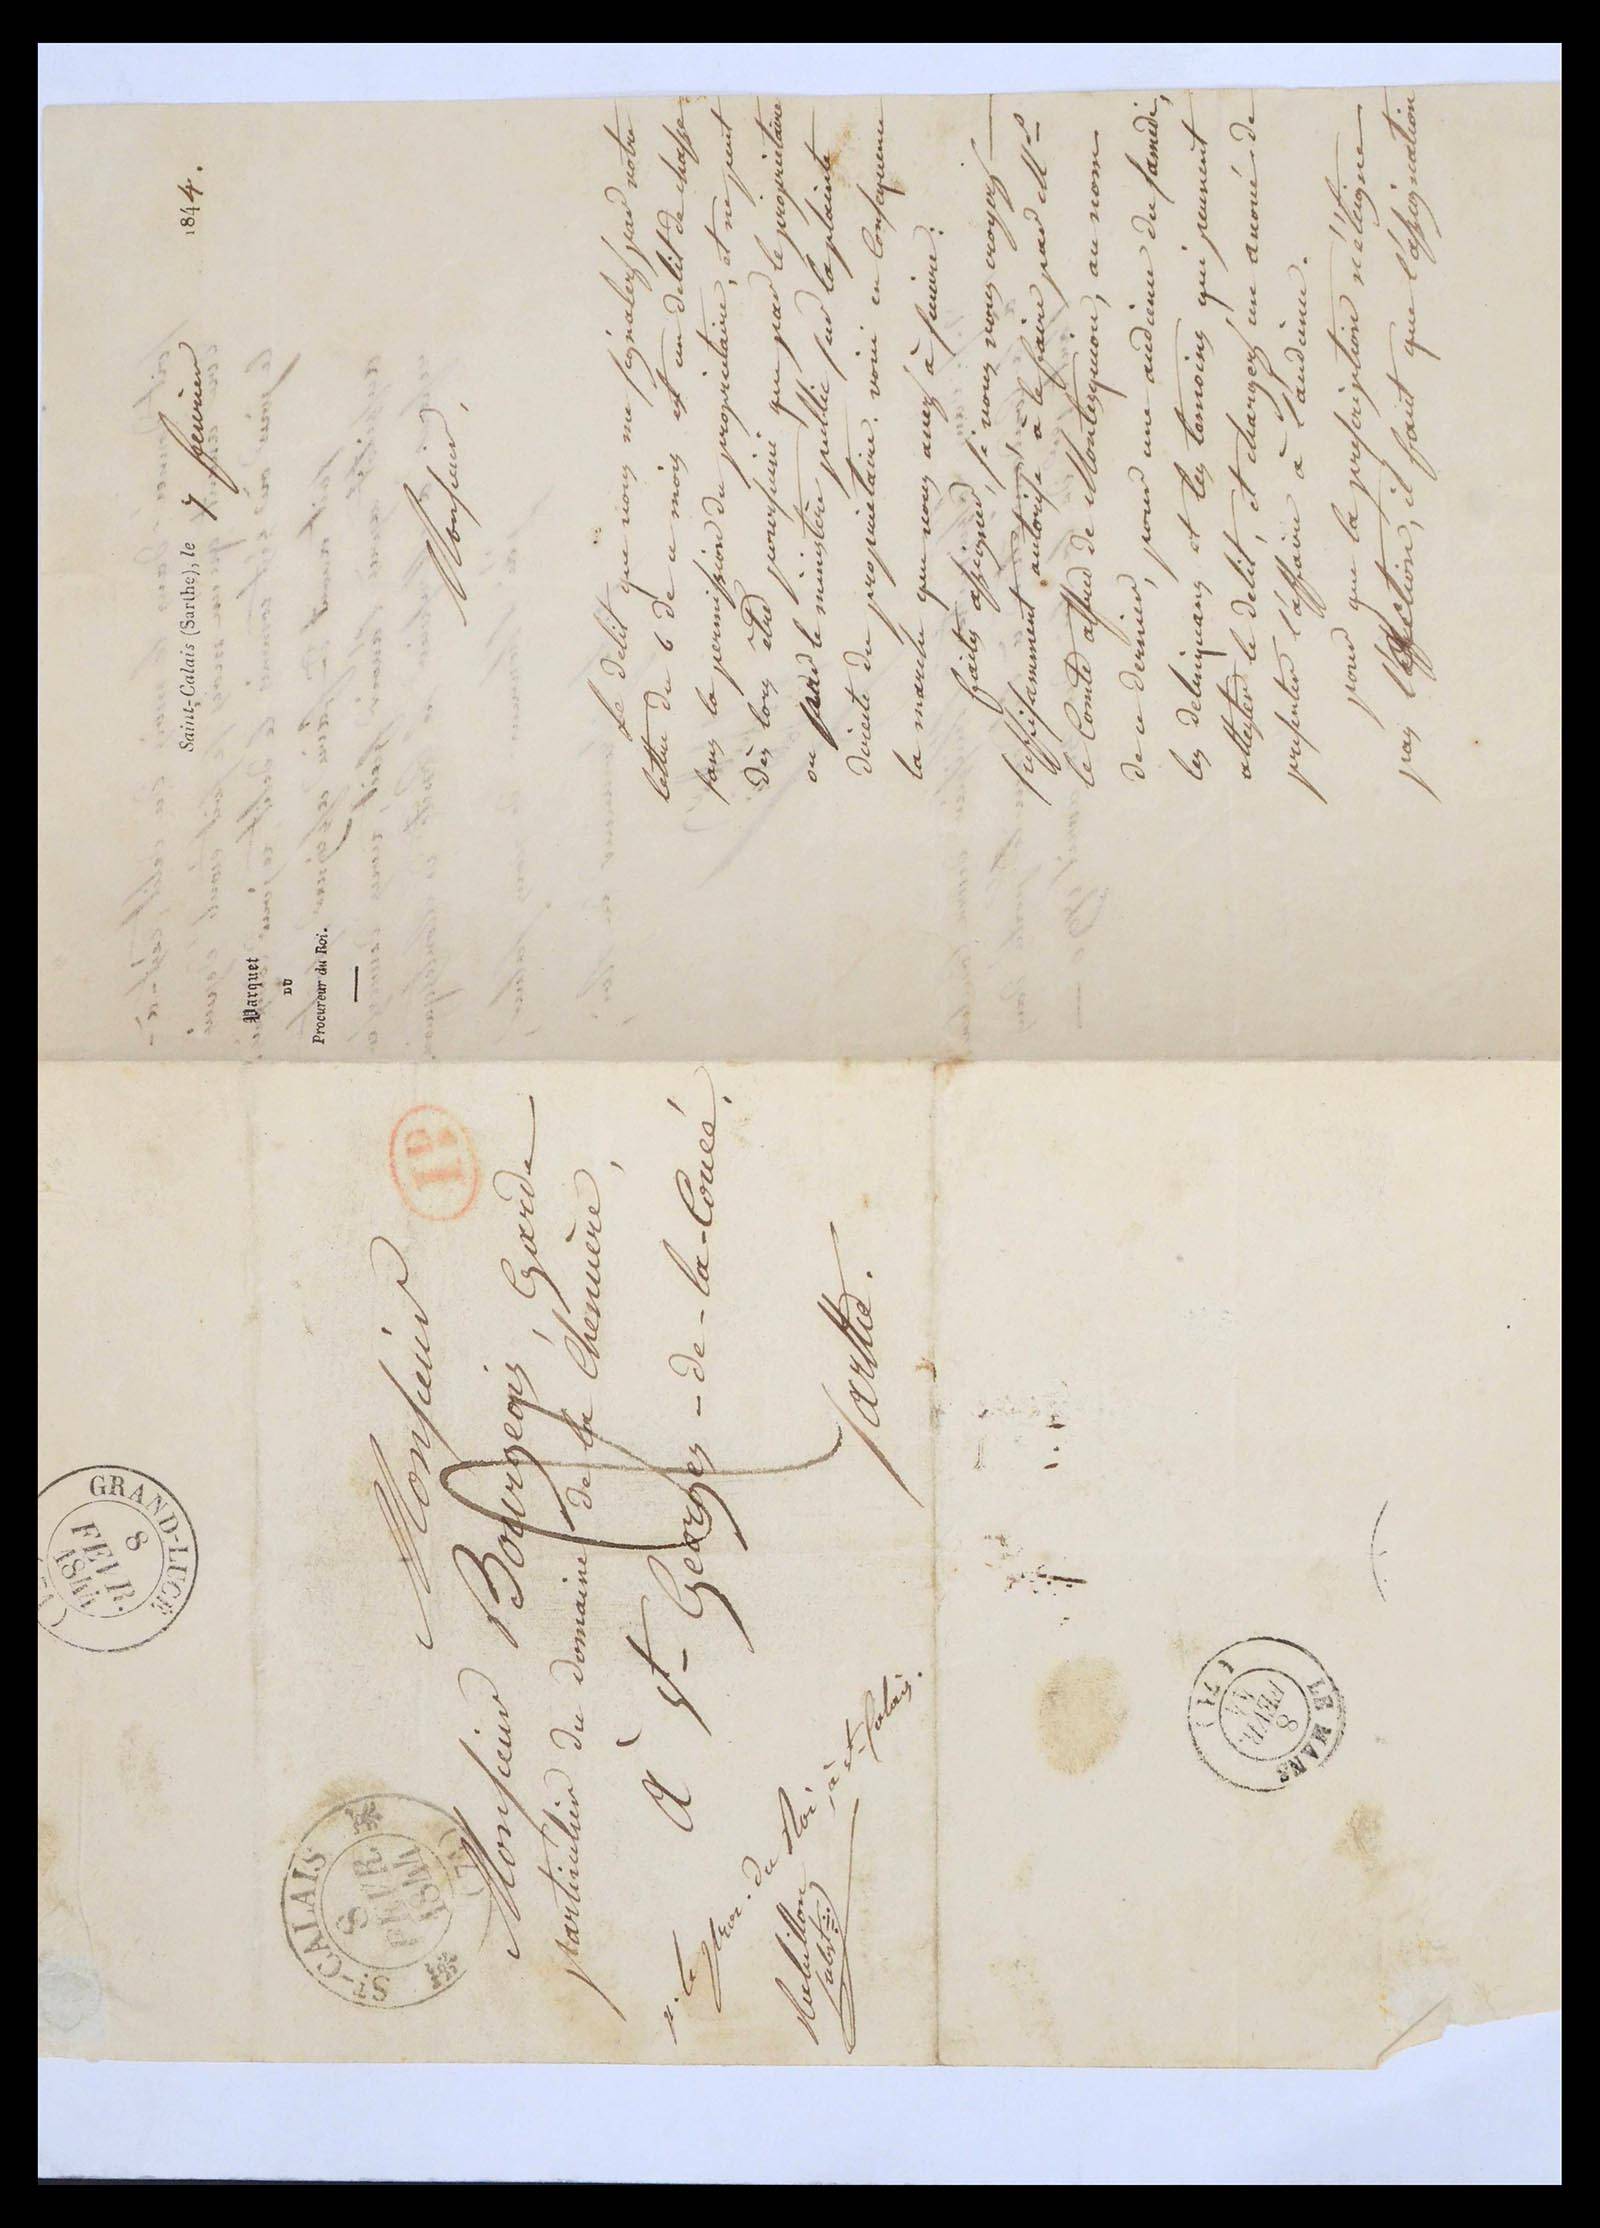 Parquet
DU
Procureur du Roi.
Saint-Calais (Sarthe), le 7 fevrier 1844.
Monsieur,
Le délit que vous me signalez par votre
lettre du 6 de ce mois est un délit de chasse
sans la permission du propriétaire, et ne peut
dès lors être poursuivi que par le propriétaire
ou par le ministère public sur la plainte
directe du propriétaire. voici en conséquence
la marche que vous avez à suivre:
faites assigner, si vous vous croyez
suffisamment autorisé à le faire par Mr
le Comte alfred de Montesquiou, au nom
de ce dernier, pour une audience du samedi,
les delinquans et les temoins qui peuvent
attester le délit, et chargez un avoué de
présenter l'affaire à l'audience.
pour que la prescription n'éteigne
pas l'action, il faut que l'assignation
Monsieur
Monsieur Bourgeois, Garde
particulier du domaine de la Chenuère,
à St Georges-de-la-Couée,
Sarthe.
du Roi
à St Calais.
1D
ST-CALAIS
8
FEVR.
1844
(71)
GRAND-LUCÉ
8
FEVR.
1844
LE MANS
8
FEVR.
44
(71)